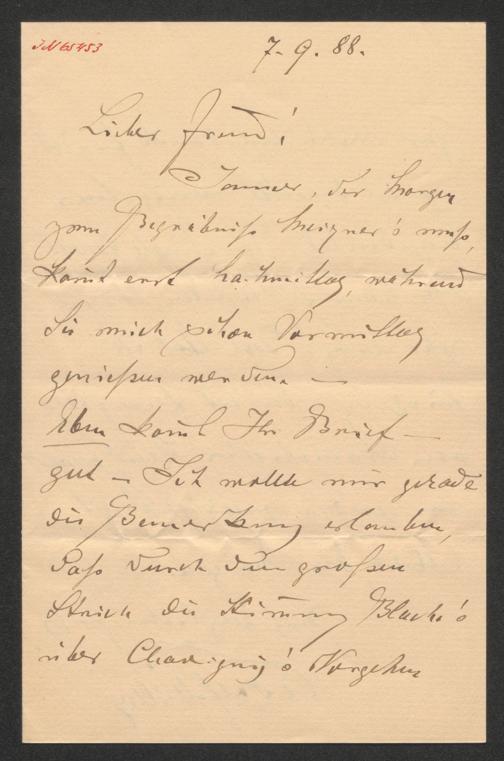 JN 65453
7. 9. 88.
Lieber Freund!
Sommer, der Morgen
zum Begräbniß muß,
komt erst Nachmittag, während
Sie mich schon Vormittag
genießen werden. —
Eben komt Ihr Brief —
gut — Ich wollte mir gerade
die Bemerkung erlauben,
daß durch den großen
Strich die Stimmung
über Vorgehen